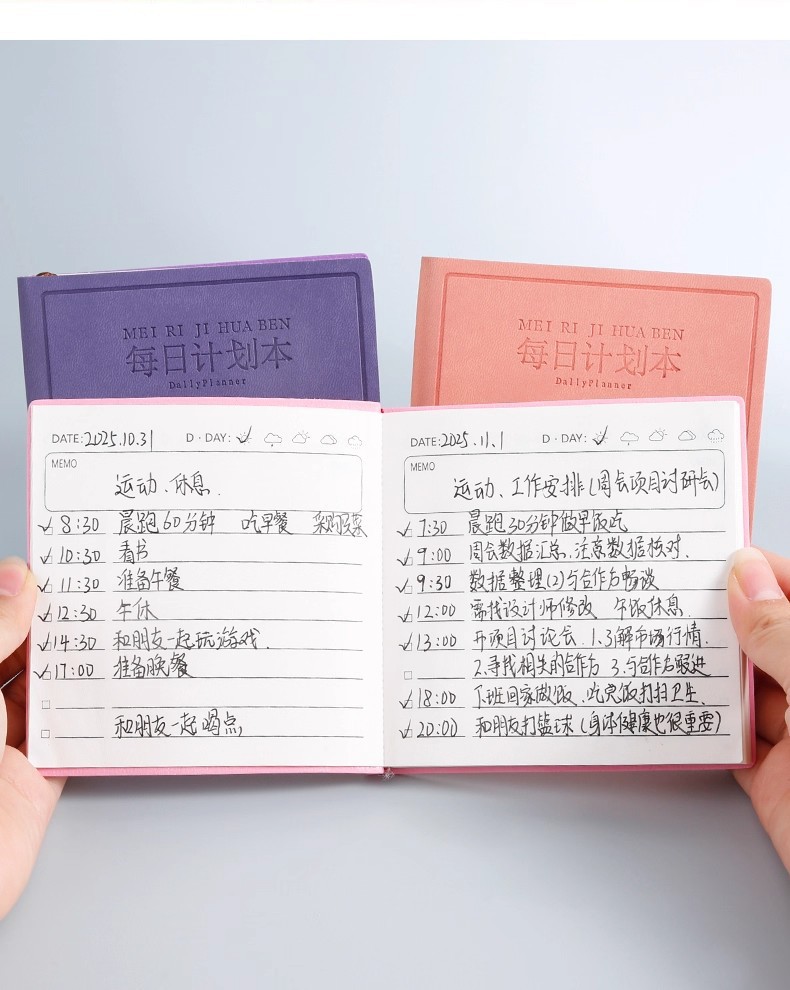 MEI RI JI HUA BEN
每日计划本
DailyPlanner
MEI RI JI HUA BEN
每日计划本
DailyPlanner
DATE:2025.10.31 D·DAY:
MEMO
运动、休息.
8:30 晨跑60分钟 吃早餐 采购蔬菜
10:30 看书
11:30 准备午餐
12:30 午休
14:30 和朋友一起玩游戏.
17:00 准备晚餐
和朋友一起喝点
DATE:2025.11.1 D·DAY:
MEMO
运动、工作安排(周会项目讨研会)
7:30 晨跑30分钟做早饭吃
9:00 周会数据汇总,注意数据核对.
9:30 数据整理(2)与合作方畅谈
12:00 需找设计师修改 午饭休息.
13:00 开项目讨论会 1.了解市场行情.
2.寻找相关的合作方 3.与合作方跟进
18:00 下班回家做饭、吃完饭打扫卫生.
20:00 和朋友打篮球(身体健康也很重要)